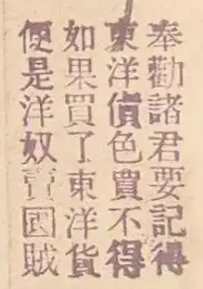 奉勸諸君要記得
東洋貨色買不得
如果買了東洋貨
便是洋奴賣國賊